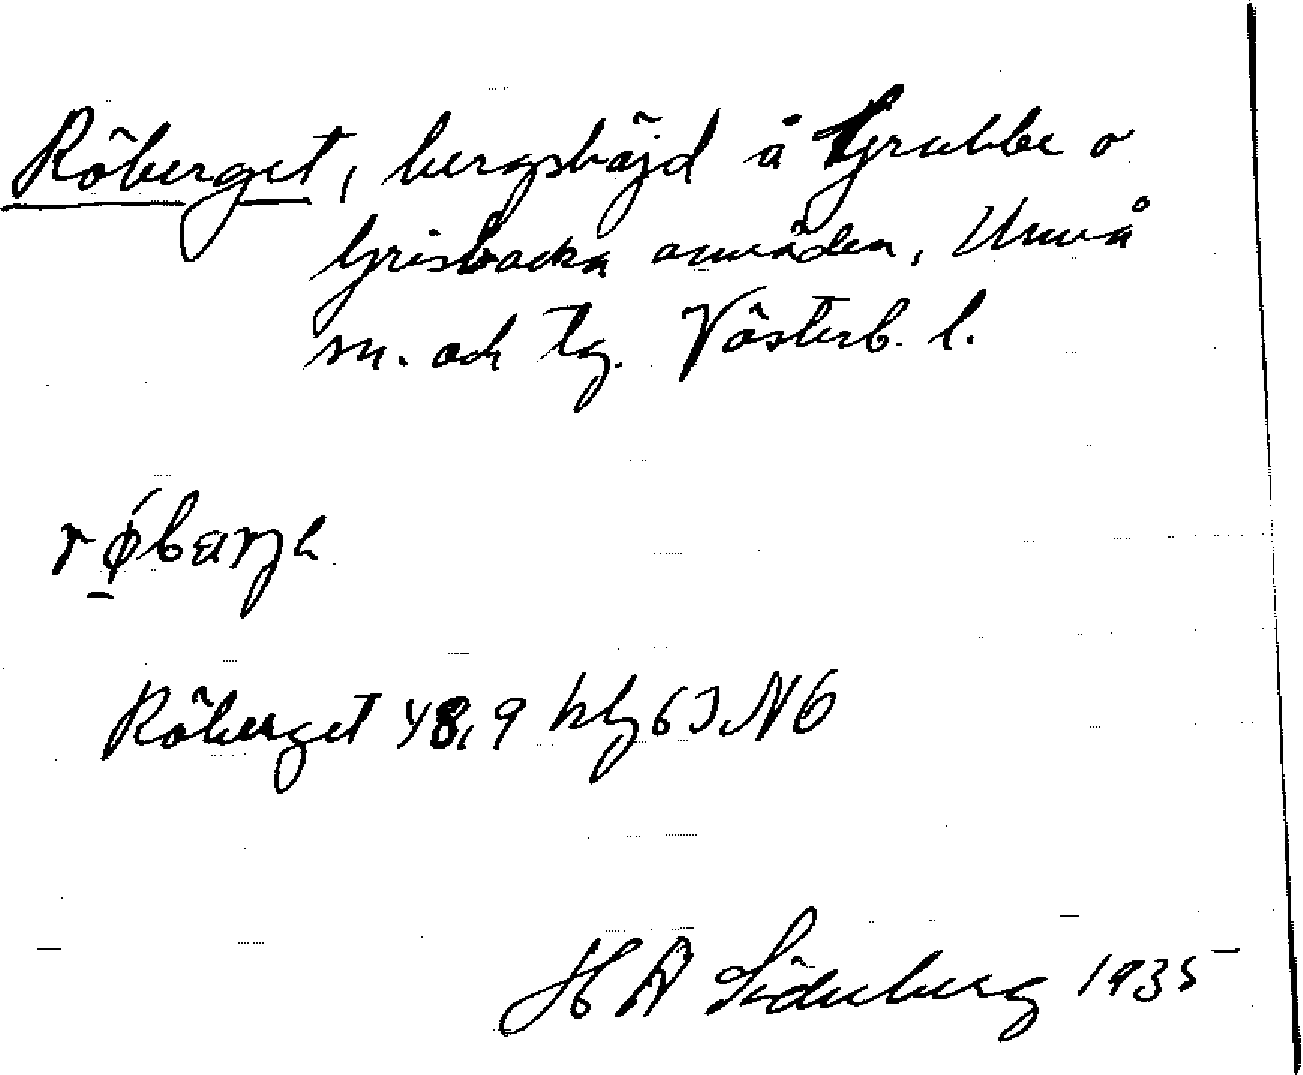 Röberget, bergshöjd å Grubbe o
Grisbacka områden, Umeå
sn. och tg. Västerb. l.
røbærjɂ
Röberget 48,9 kbl 63 NO
H A Söderberg 1935